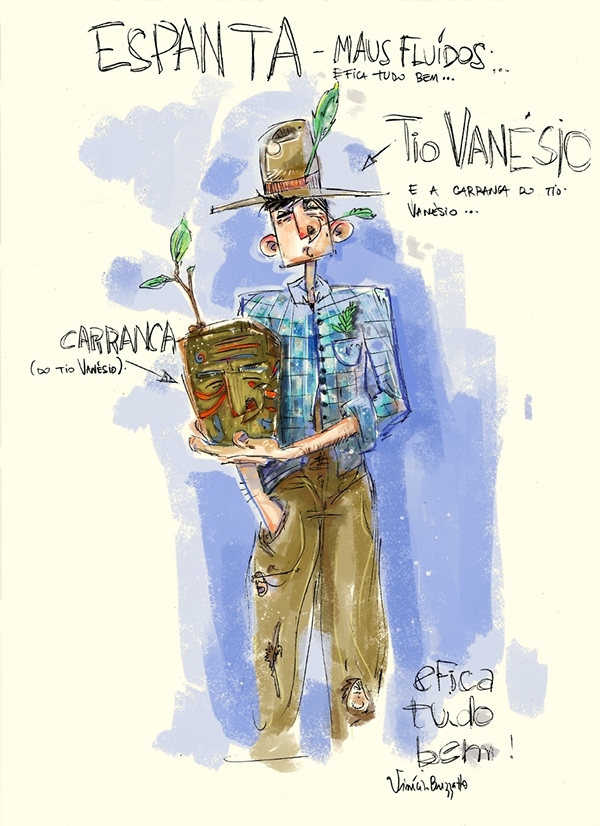 ESPANTA - MAUS FLUÍDOS...
E FICA TUDO BEM...
TIO VANÉSIO
E A CARRANCA DO TIO
VANÉSIO...
CARRANCA
(DO TIO VANÉSIO)
e Fica
tudo
bem!